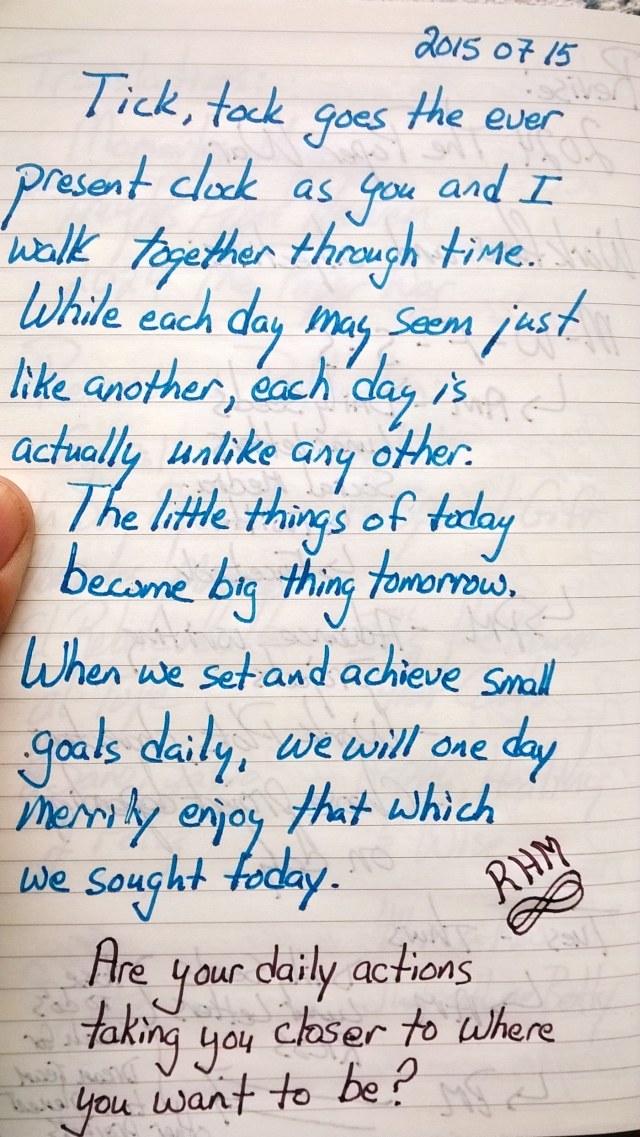 2015 07 15
Tick, tock goes the ever
present clock as you and I
walk together through time.
While each day may seem just
like another, each day is
actually unlike any other.
The little things of today
become big thing tomorrow.
When we set and achieve small
goals daily, we will one day
merrily enjoy that which
we sought today.
RHM
Are your daily actions
taking you closer to where
you want to be?